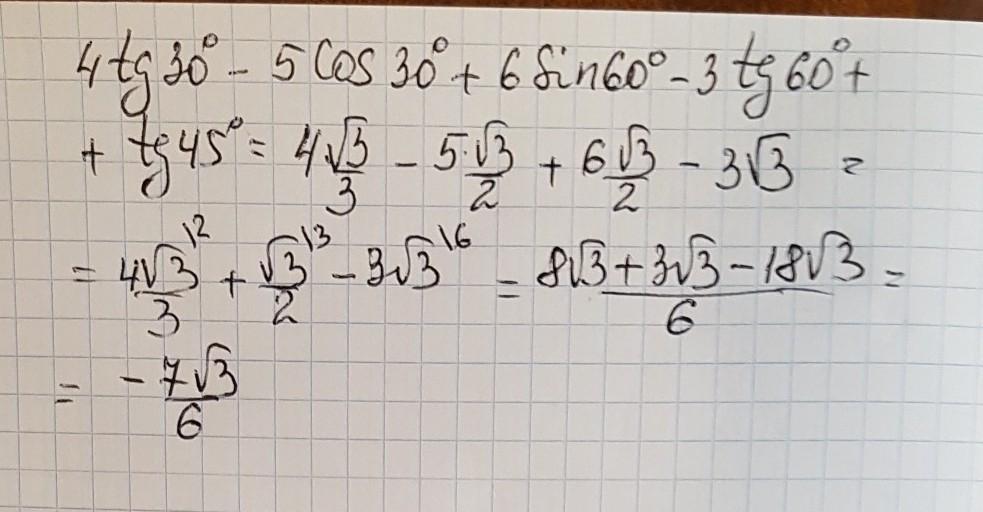 4tg30° - 5Cos30° + 6Sin60° - 3tg60° +
+ tg45° = 4√3/3 - 5·√3/2 + 6√3/2 - 3√3 =
= 4√3/3 \2 + √3/2 \3 - 3√3 \6 = 8√3 + 3√3 - 18√3/6 =
= - 7√3/6